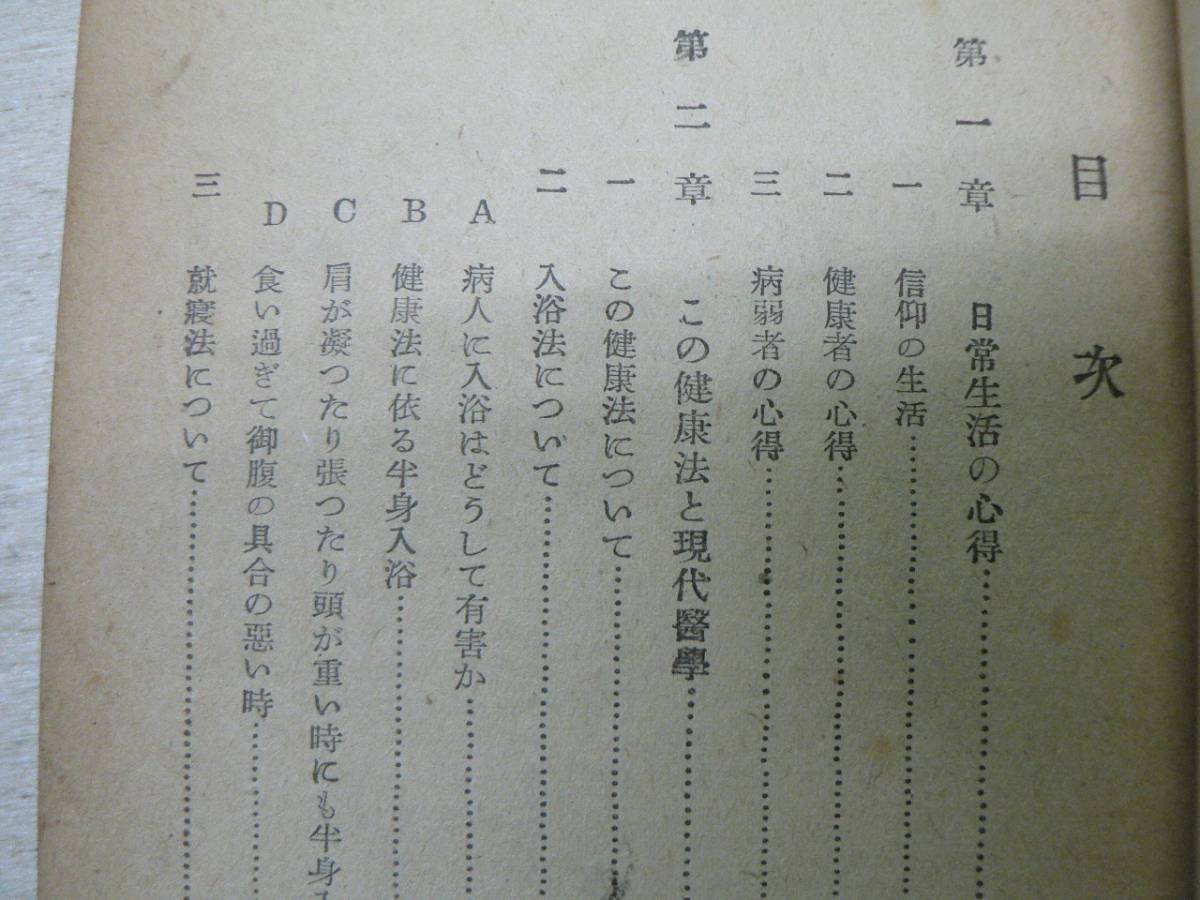 目次
第一章 日常生活の心得
一 信仰の生活
二 健康者の心得
三 病弱者の心得
第二章 この健康法と現代醫學
一 この健康法について
二 入浴法について
A 病人に入浴はどうして有害か
B 健康法に依る半身入浴
C 肩が凝つたり張つたり頭が重い時にも半身
D 食い過ぎて御腹の具合の惡い時
三 就寢法について